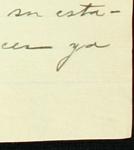 su esta-
ces ya